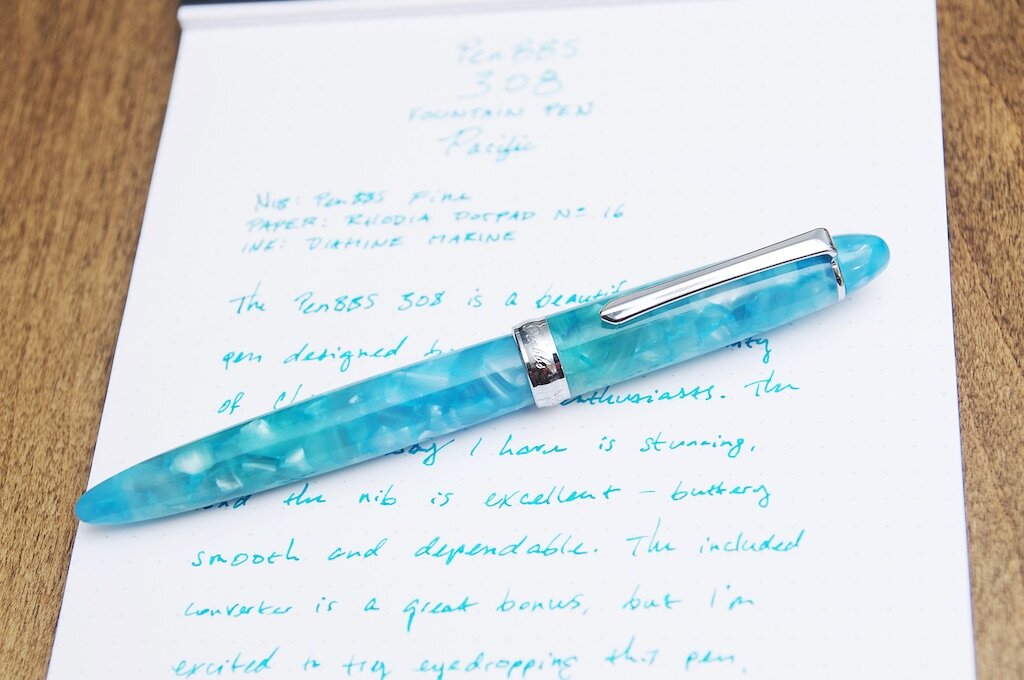 PenBBS
308
FOUNTAIN PEN
Pacific
NIB: PenBBS Fine
PAPER: RHODIA DOTPAD No 16
INK: DIAMINE MARINE
The PenBBS 308 is a beautif
pen designed
of enthusiasts. The
I have is stunning,
and the nib is excellent - buttery
smooth and dependable. The included
converter is a great bonus, but I'm
excited to try eyedropping this pen.